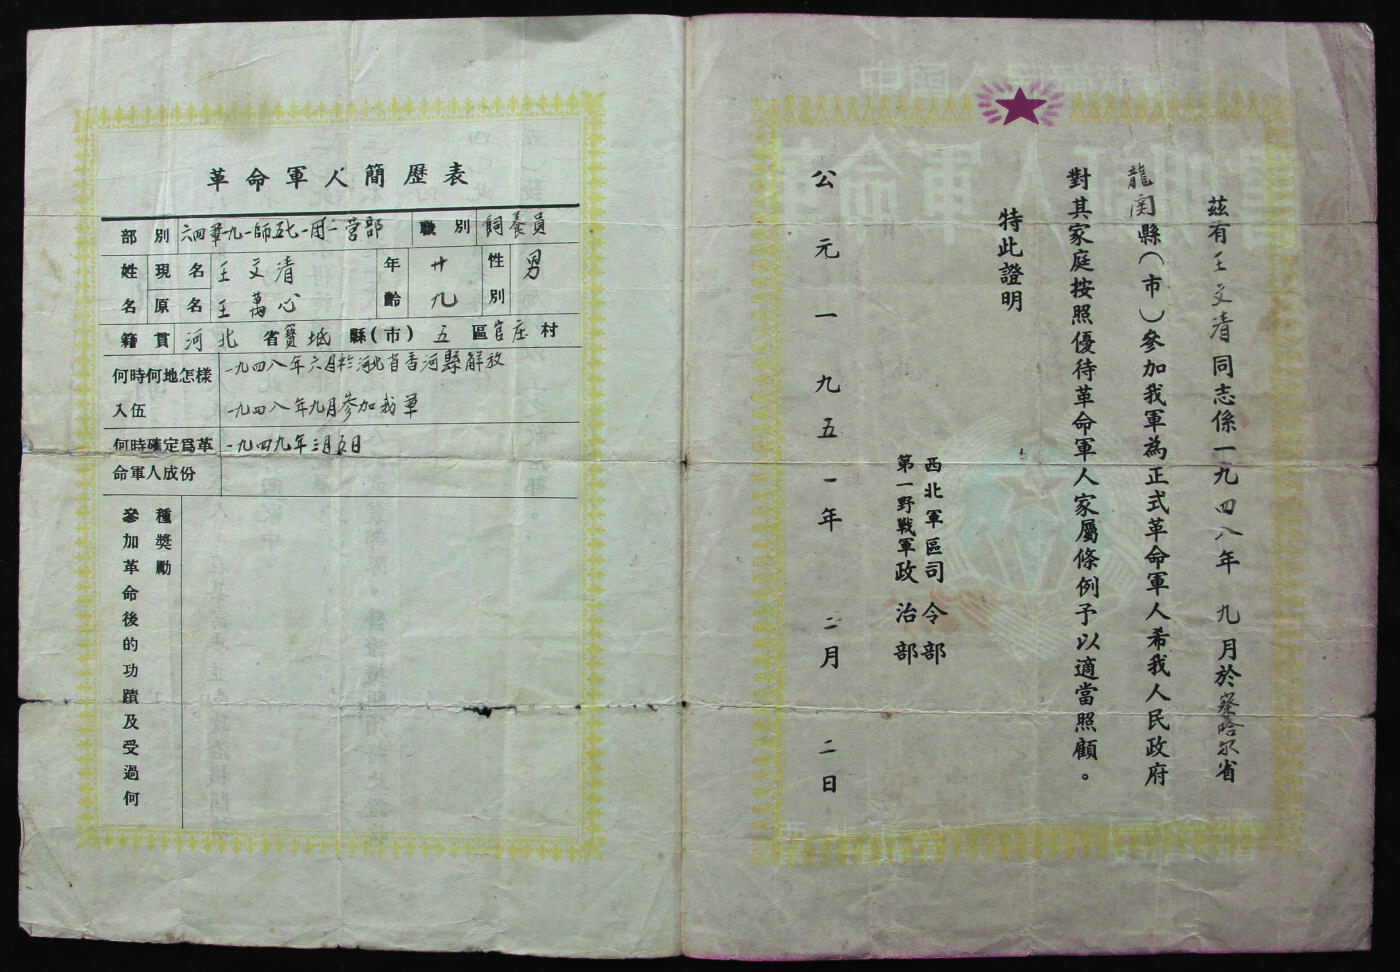 茲有王文清同志係一九四八年九月於察哈尔省
龍関縣（市）參加我軍為正式革命軍人希我人民政府
對其家庭按照優待革命軍人家屬條例予以適當照顧。
特此證明
西北軍區司令部
第一野戰軍政治部
公元一九五一年二月二日
革命軍人簡歷表
部別 六四軍九一師五七一团二营部 職別 飼養員
姓名 現名 王文清 年齡 廿九 性別 男
原名 王萬心
籍貫 河北省寶坻縣(市)五區官庄村
何時何地怎樣入伍 一九四八年六月於河北省香河縣解放
一九四八年九月參加我軍
何時確定爲革命軍人成份 一九四九年三月五日
參加革命後的功蹟及受過何種獎勵